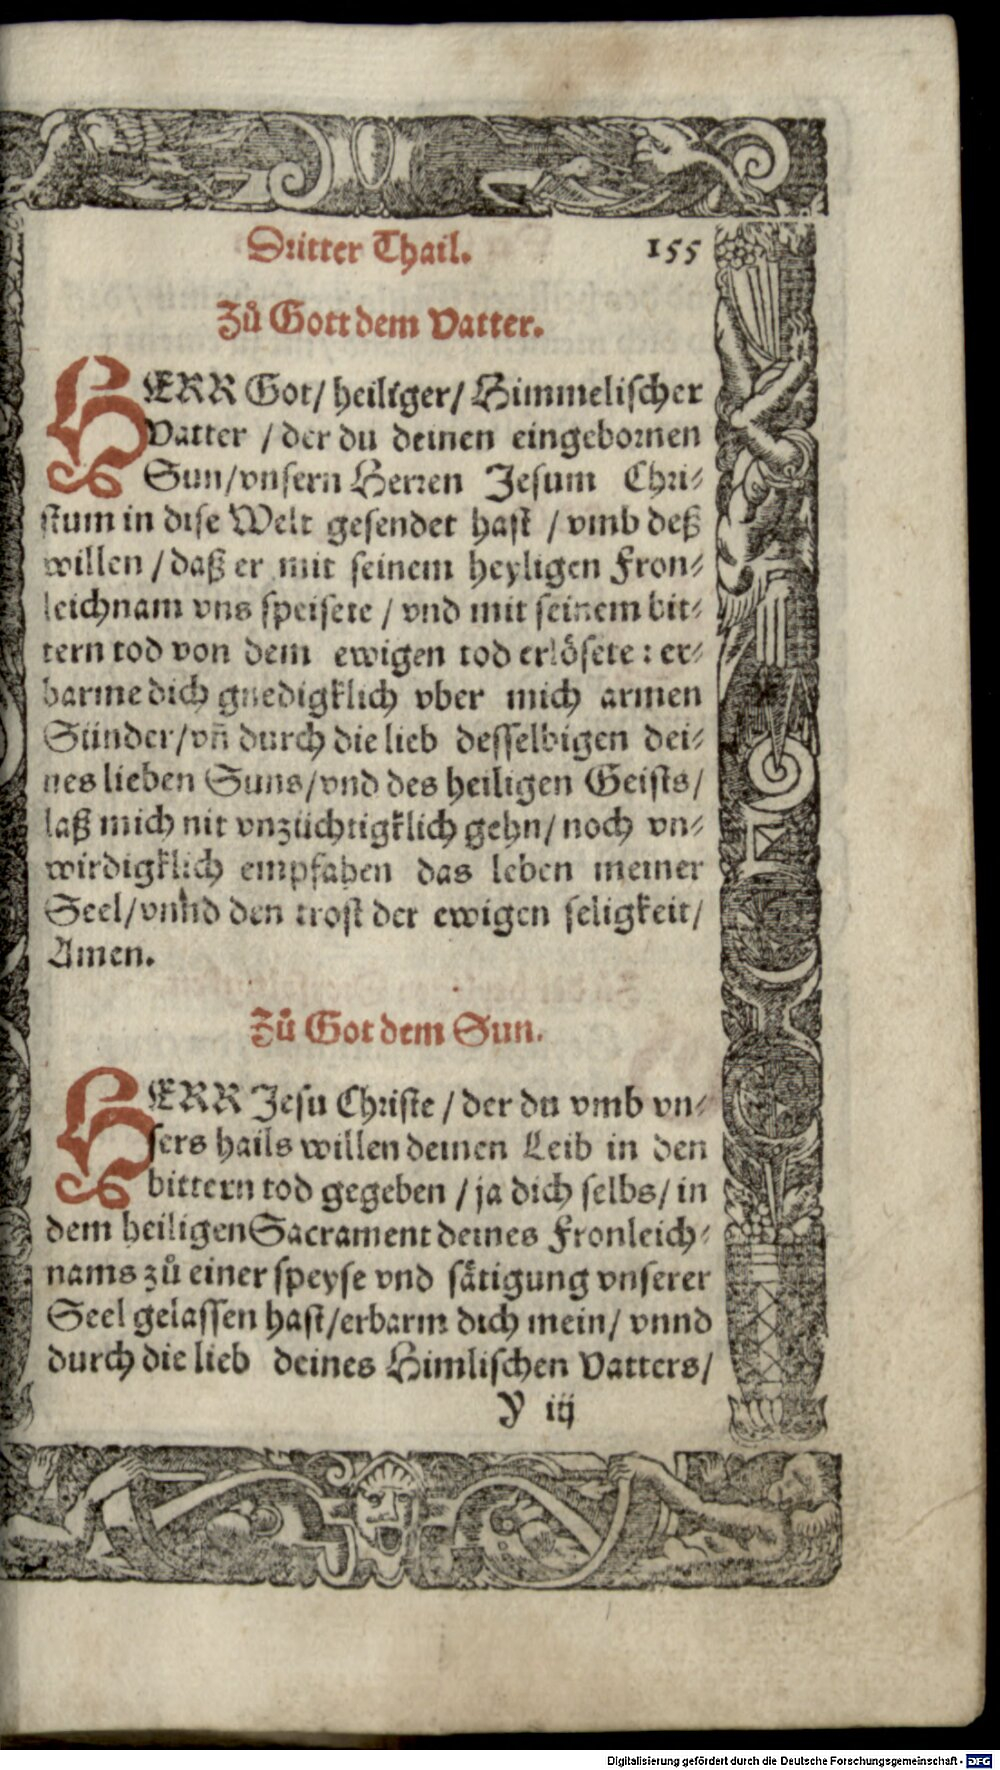 Dritter Thail. 155
Zů Gott dem Vatter.
HERR Got/ heiliger/ Himmelischer
Vatter / der du deinen eingebornen
Sun/vnsern Herren Jesum Chri⸗
stum in dise Welt gesendet hast / vmb deß
willen / daß er mit seinem heyligen Fron⸗
leichnam vns speisete / vnd mit seinem bit⸗
tern tod von dem ewigen tod erlösete : er⸗
barme dich gnedigklich vber mich armen
Sünder/vñ durch die lieb desselbigen dei⸗
nes lieben Suns/vnd des heiligen Geists/
laß mich nit vnzüchtigklich gehn/ noch vn⸗
wirdigklich empfahen das leben meiner
Seel/vnnd den trost der ewigen seligkeit/
Amen.
Zů Got dem Sun.
HERR Jesu Christe / der du vmb vn⸗
sers hails willen deinen Leib in den
bittern tod gegeben / ja dich selbs/ in
dem heiligen Sacrament deines Fronleich⸗
nams zů einer speyse vnd sätigung vnserer
Seel gelassen hast/erbarm dich mein/ vnnd
durch die lieb deines Himlischen Vatters/
Y iij
Digitalisierung gefördert durch die Deutsche Forschungsgemeinschaft - DFG